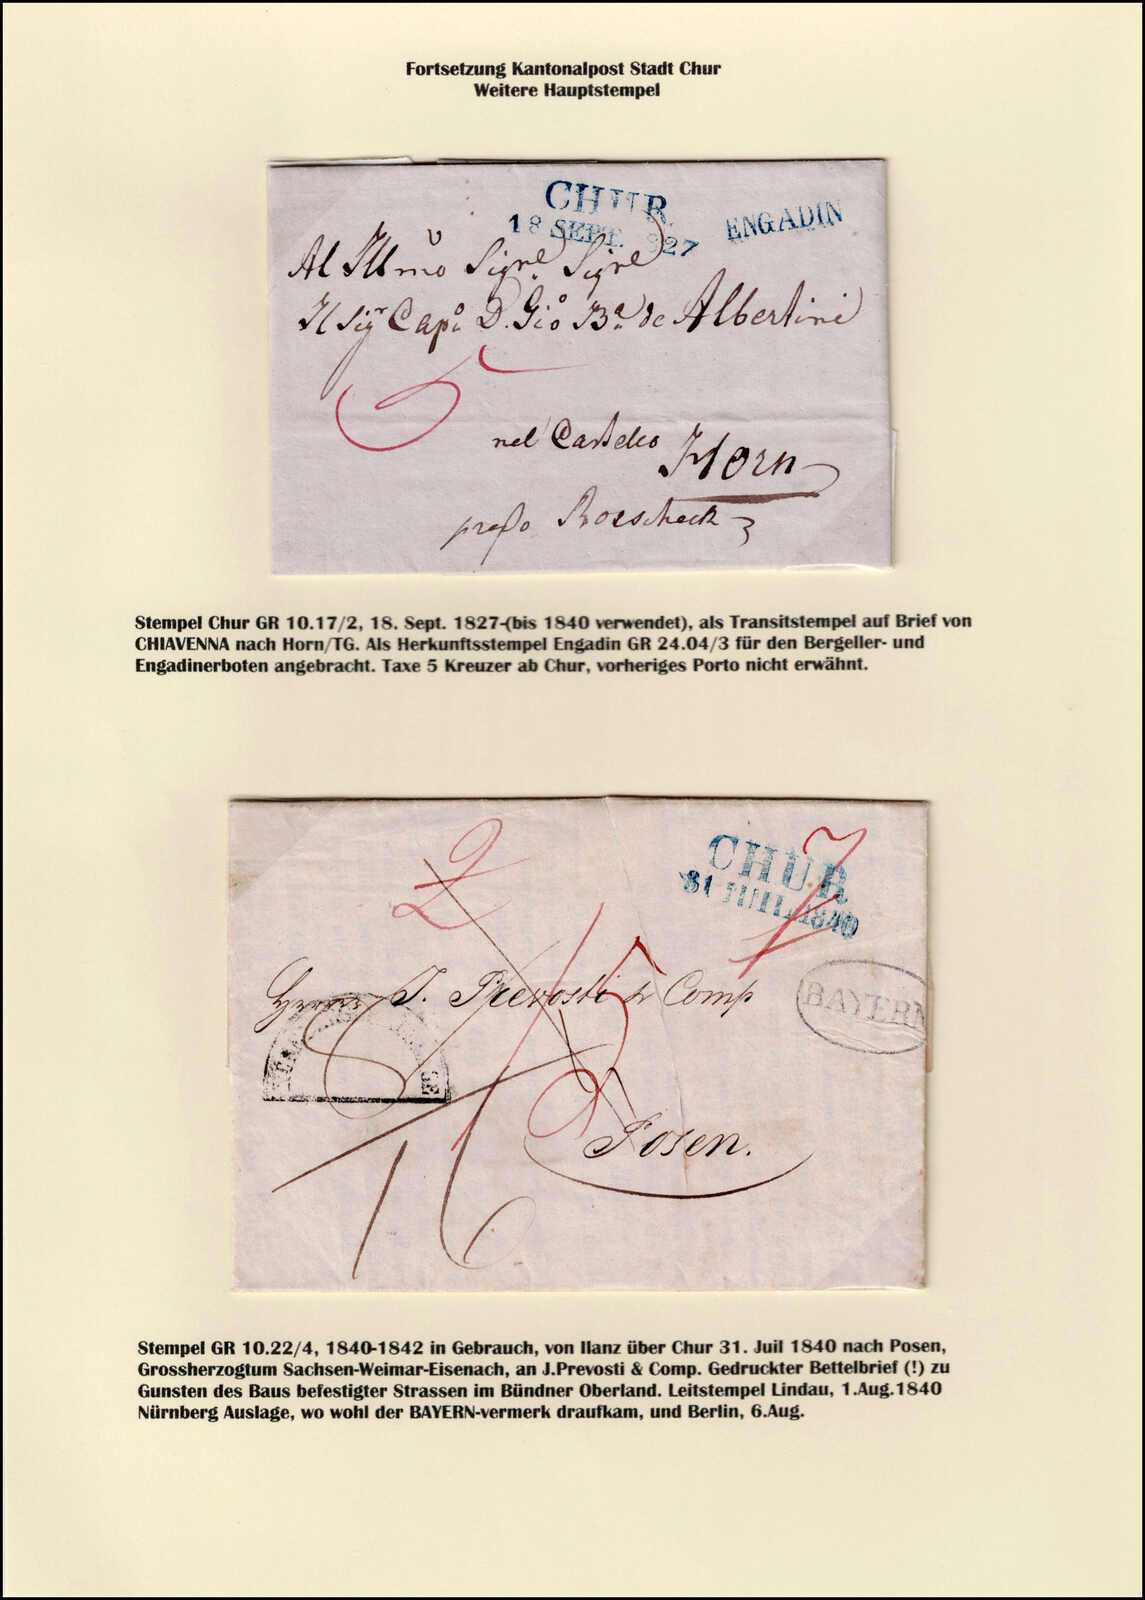 Fortsetzung Kantonalpost Stadt Chur
Weitere Hauptstempel
CHUR
18 SEPT. 827
ENGADIN
Al Illmo Sigre Sigre
Il Sigr Capo D. Gio Ba de Albertini
5
nel Castello
Horn
presso Roschack
Stempel Chur GR 10.17/2, 18. Sept. 1827-(bis 1840 verwendet), als Transitstempel auf Brief von
CHIAVENNA nach Horn/TG. Als Herkunftsstempel Engadin GR 24.04/3 für den Bergeller- und
Engadinerboten angebracht. Taxe 5 Kreuzer ab Chur, vorheriges Porto nicht erwähnt.
CHUR
31 JUIL. 1840
BAYERN
Herren J. Prevosti & Comp
Posen.
Stempel GR 10.22/4, 1840-1842 in Gebrauch, von Ilanz über Chur 31. Juil 1840 nach Posen,
Grossherzogtum Sachsen-Weimar-Eisenach, an J.Prevosti & Comp. Gedruckter Bettelbrief (!) zu
Gunsten des Baus befestigter Strassen im Bündner Oberland. Leitstempel Lindau, 1.Aug.1840
Nürnberg Auslage, wo wohl der BAYERN-vermerk draufkam, und Berlin, 6.Aug.